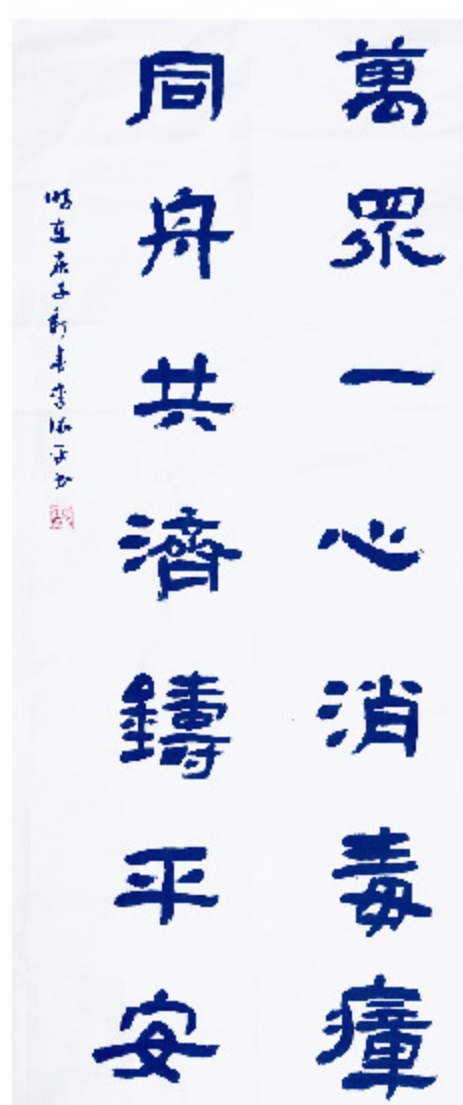 萬眾一心消毒瘴
同舟共濟鑄平安
時在庚子新春李海平书